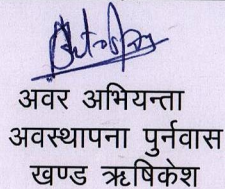 अवर अभियन्ता
अवस्थापना पुर्नवास
खण्ड ऋषिकेश